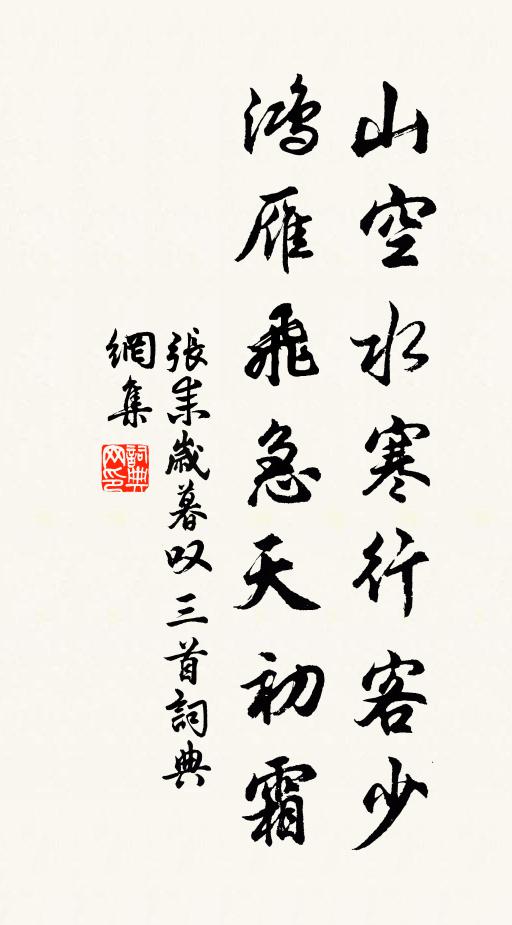 山空水寒行客少
鸿雁飛急天初霜
張耒歲暮叹三首詞典
網集
詞典
网印